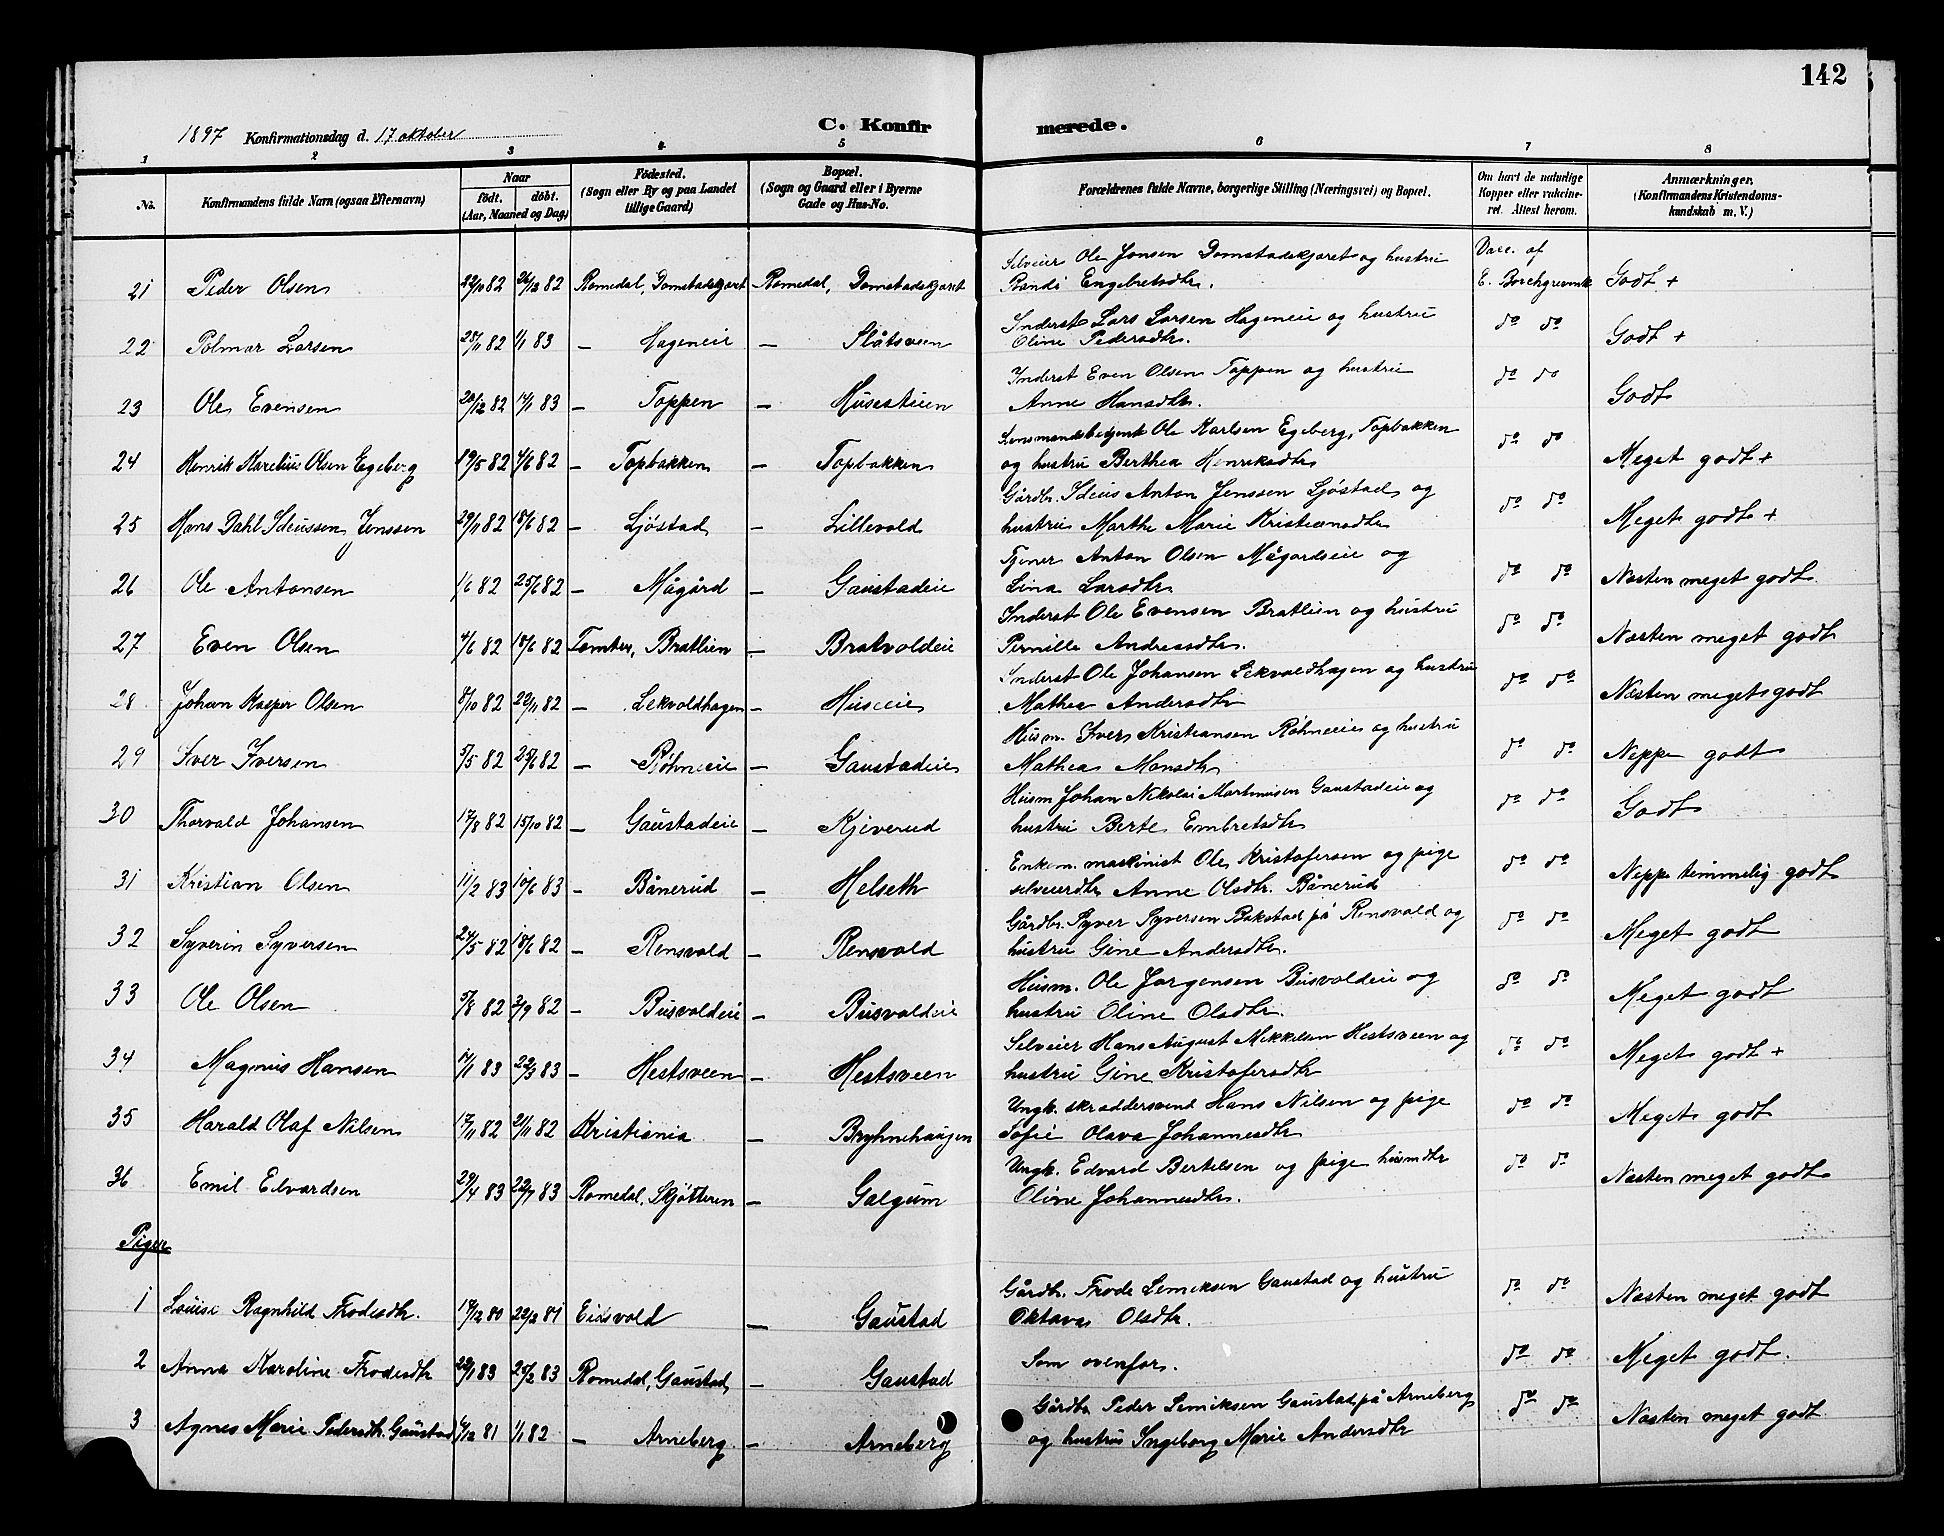 142
1897 Konfirmationsdag d. 17 oktober
C. Konfirmerede.
1 2 3 4 5 6 7 8
No. Konfirmandens fulde Navn (ogsaa Efternavn) Naar født. døbt. (Aar, Maaned og Dag) Fødested. (Sogn eller By og paa Landet tillige Gaard) Bopæl. (Sogn og Gaard eller i Byerne Gade og Hus-No. Forældrenes fulde Navne, borgerlige Stilling (Næringsvei) og Bopæl. Om havt de naturlige Kopper eller vakcineret. Attest herom. Anmærkninger, (Konfirmandens Kristendomskundskab m. V.)
21 Peder Olsen 22/10 82 26/12 82 Romedal, Domstadskjæret Romedal, Domstadskjæret Selveier Ole Jonsen Domstadskjæret og hustru Vacc. af
Randi Engebretsdtr. E. Borchgrevink Godt +
22 Polmar Larsen 28/11 82 1/1 83 – Hageneie – Slåtsveen Inderst Lars Larsen Hageneie og hustru do do Godt +
Oline Pedersdtr.
23 Ole Evensen 20/12 82 14/1 83 – Toppen – Husestuen Inderst Even Olsen Toppen og hustru do do Godt
Anne Hansdtr.
24 Henrik Karelius Olsen Egeberg 19/5 82 4/6 82 – Topbakken – Topbakken Lensmandsbetjent Ole Karlsen Egeberg, Topbakken do do Meget godt +
og hustru Berthea Henriksdtr
25 Hans Dahl Ideussen Jenssen 29/1 82 18/6 82 – Ljøstad – Lillevold Gårdbr. Ideus Anton Jenssen Ljøstad og do do Meget godt +
hustru Marthe Marie Kristiansdtr
26 Ole Antonsen 1/6 82 25/6 82 – Mågård – Gaustadeie Tjener Anton Olsen Mågardseie og do do Næsten meget godt.
Lina Larsdtr
27 Even Olsen 4/6 82 18/6 82 Tomter, Bratlien – Bratvoldeie Inderst Ole Evensen Bratlien og hustru do do Næsten meget godt
Pernille Andreasdtr.
28 Johan Kasper Olsen 8/10 82 22/11 82 – Lekvoldhagen – Huseeie Inderst Ole Johansen Lekvoldhagen og hustru do do Næsten meget godt
Mathea Andersdtr
29 Iver Iversen 5/5 82 25/6 82 – Røhneeie – Gaustadeie Husm. Iver Kristiansen Røhneeie og hustru do do Neppe godt
Mathea Monsdtr
30 Thorvald Johansen 17/8 82 15/10 82 – Gaustadeie – Kjeverud Husm Johan Nikolai Martinusen Gaustadeie og do do Godt
hustru Berte Embretsdtr
31 Kristian Olsen 11/2 83 10/6 83 – Bånerud – Helseth Enkem. maskinist Ole Kristofersen og pige do do Neppe temmelig godt
selveierdtr Anne Olsdtr. Bånerud
32 Syverin Syversen 24/5 82 18/6 82 – Rensvold – Rensvold Gårdbr. Syver Syversen Bakstad på Rensvold og do do Meget godt
hustru Gine Andersdtr.
33 Ole Olsen 5/8 82 3/9 82 – Busvoldeie – Busvoldeie Husm. Ole Jørgensen Busvoldeie og do do Meget godt
hustru Oline Olsdtr.
34 Magnus Hansen 14/1 83 22/3 83 – Hestsveen – Hestsveen Selveier Hans August Mikkelsen Hestsveen og do do Meget godt +
hustru Gine Kristofersdtr
35 Harald Olaf Nilsen 17/11 82 21/11 82 Kristiania – Bryhnehaugen Ungk. skræddersvend Hans Nilsen og pige do do Meget godt
Sofie Olava Johannesdtr
36 Emil Edvardsen 29/4 83 22/7 83 Romedal, Skjøtteren – Galgum Ungk. Edvard Bertelsen og pige husmdtr do do Næsten meget godt
Oline Johannesdtr.
Piger
1 Louise Ragnhild Frodesdtr. 18/12 80 22/2 81 Eidsvold – Gaustad Gårdbr. Frode Lemiksen Gaustad og hustru do do Næsten meget godt
Oktava Olsdtr.
2 Anna Karoline Frodesdtr 22/1 83 25/2 83 Romedal, Gaustad – Gaustad Som ovenfor. do do Meget godt.
3 Agnes Marie Pedersdtr. Gaustad /12 81 1/1 82 – Arneberg – Arneberg Gårdbr Peder Lemiksen Gaustad på Arneberg do do Næsten meget godt
og hustru Ingeborg Marie Andersdtr